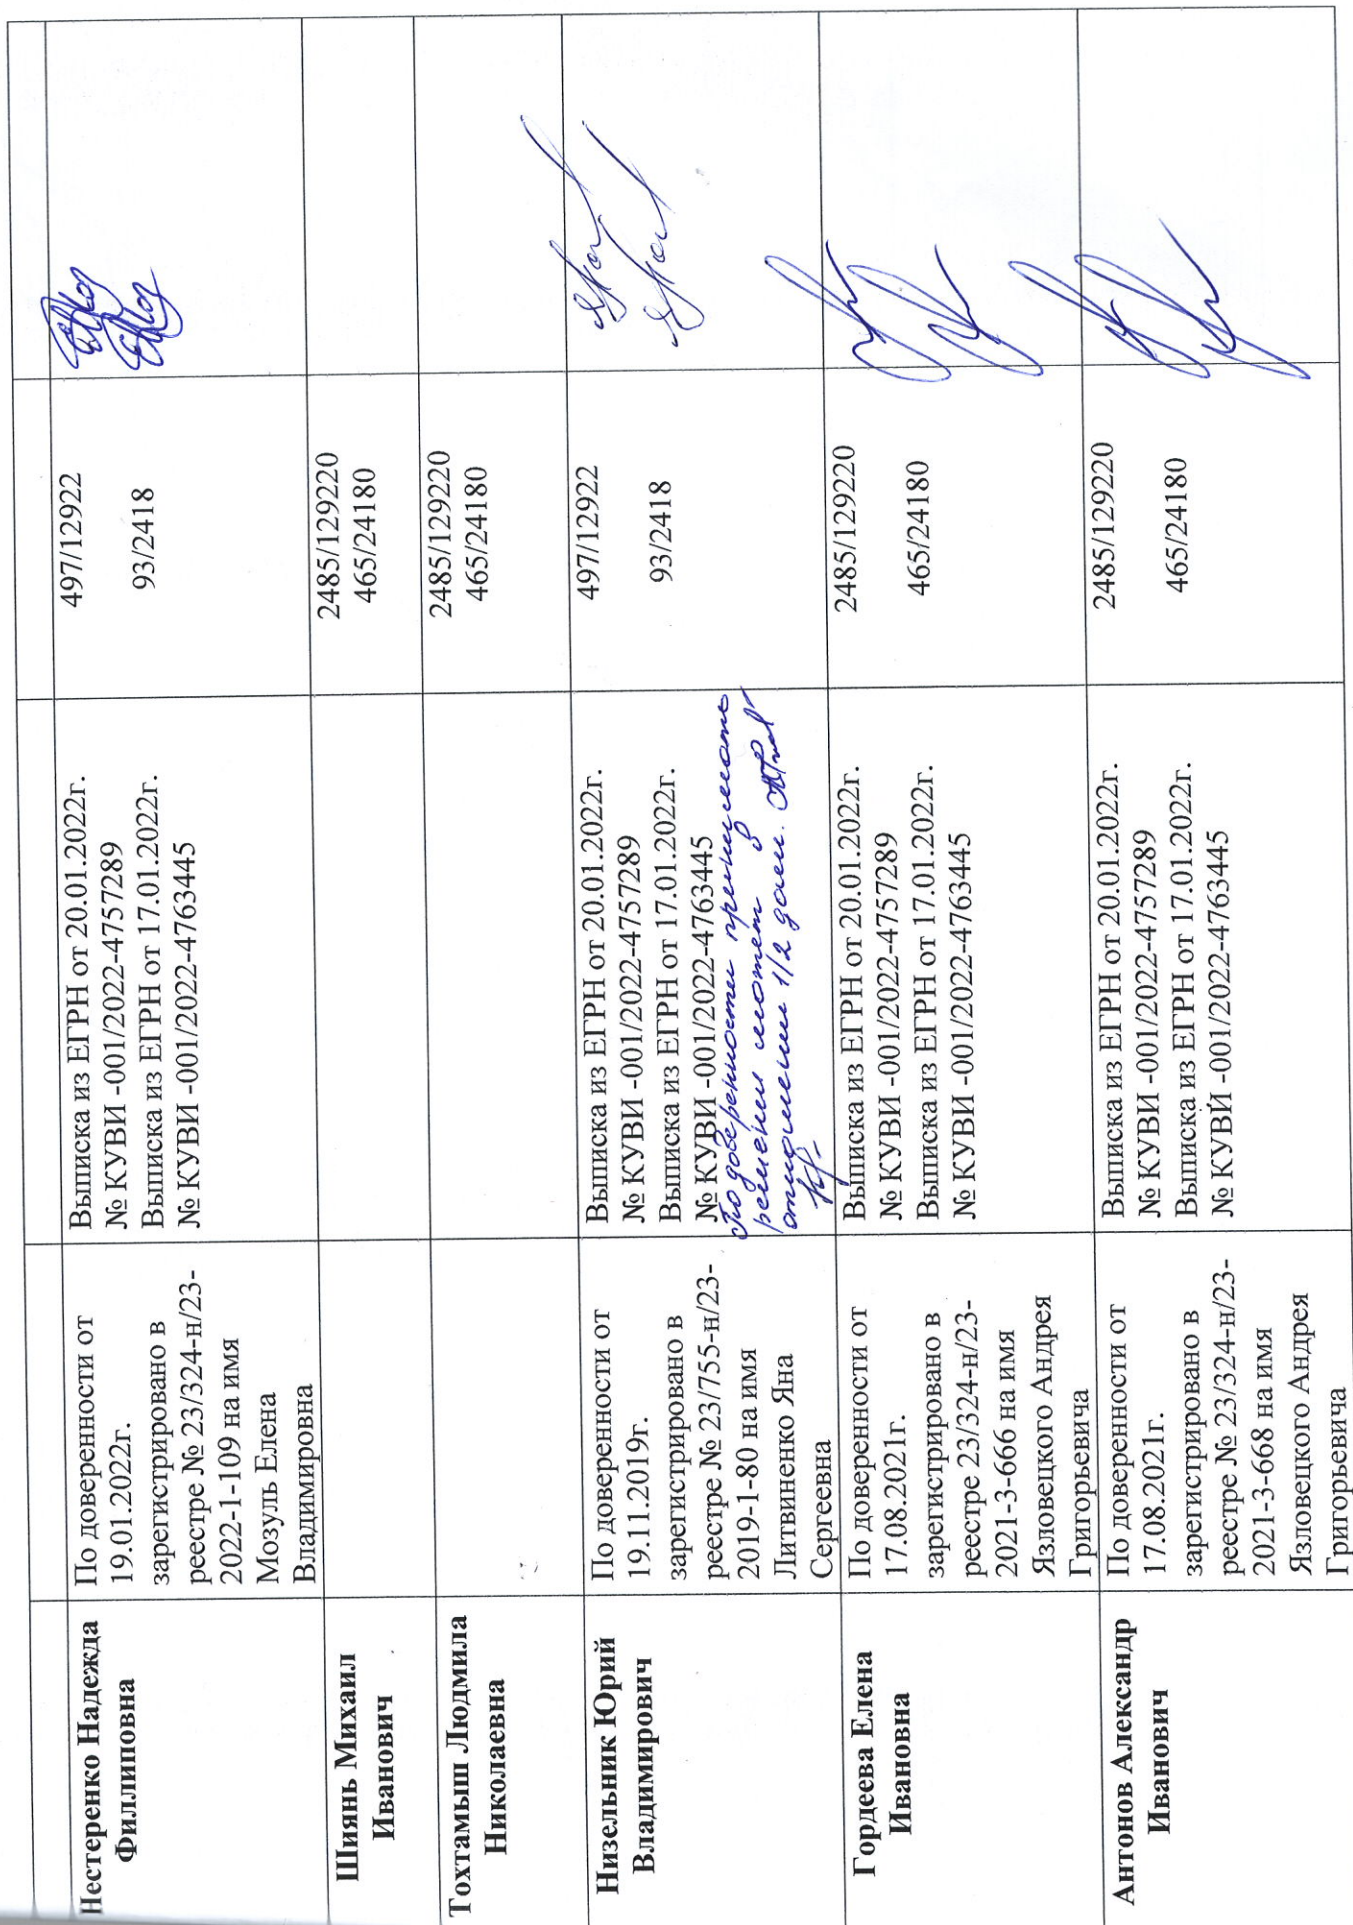 Нестеренко Надежда
Филлиповна
По доверенности от
19.01.2022г.
зарегистрировано в
реестре № 23/324-н/23-
2022-1-109 на имя
Мозуль Елена
Владимировна
Выписка из ЕГРН от 20.01.2022г.
№ КУВИ -001/2022-4757289
Выписка из ЕГРН от 17.01.2022г.
№ КУВИ -001/2022-4763445
497/12922
93/2418
Шиянь Михаил
Иванович
2485/129220
465/24180
Тохтамыш Людмила
Николаевна
2485/129220
465/24180
Низельник Юрий
Владимирович
По доверенности от
19.11.2019г.
зарегистрировано в
реестре № 23/755-н/23-
2019-1-80 на имя
Литвиненко Яна
Сергеевна
Выписка из ЕГРН от 20.01.2022г.
№ КУВИ -001/2022-4757289
Выписка из ЕГРН от 17.01.2022г.
№ КУВИ -001/2022-4763445
По доверенности принимать
решения может в
отношении 1/2 доли.
497/12922
93/2418
Гордеева Елена
Ивановна
По доверенности от
17.08.2021г.
зарегистрировано в
реестре 23/324-н/23-
2021-3-666 на имя
Язловецкого Андрея
Григорьевича
Выписка из ЕГРН от 20.01.2022г.
№ КУВИ -001/2022-4757289
Выписка из ЕГРН от 17.01.2022г.
№ КУВИ -001/2022-4763445
2485/129220
465/24180
Антонов Александр
Иванович
По доверенности от
17.08.2021г.
зарегистрировано в
реестре № 23/324-н/23-
2021-3-668 на имя
Язловецкого Андрея
Григорьевича
Выписка из ЕГРН от 20.01.2022г.
№ КУВИ -001/2022-4757289
Выписка из ЕГРН от 17.01.2022г.
№ КУВИ -001/2022-4763445
2485/129220
465/24180